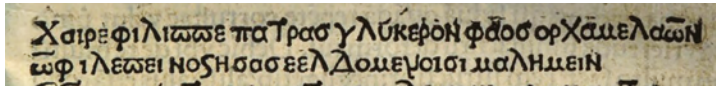 Χαιρὲφιλιππε πατρασ γλῦκερὸν φάοσ ορχάμελαῶν
ῶφιλεπει νοςησασεελδομενοισι μαλημειν